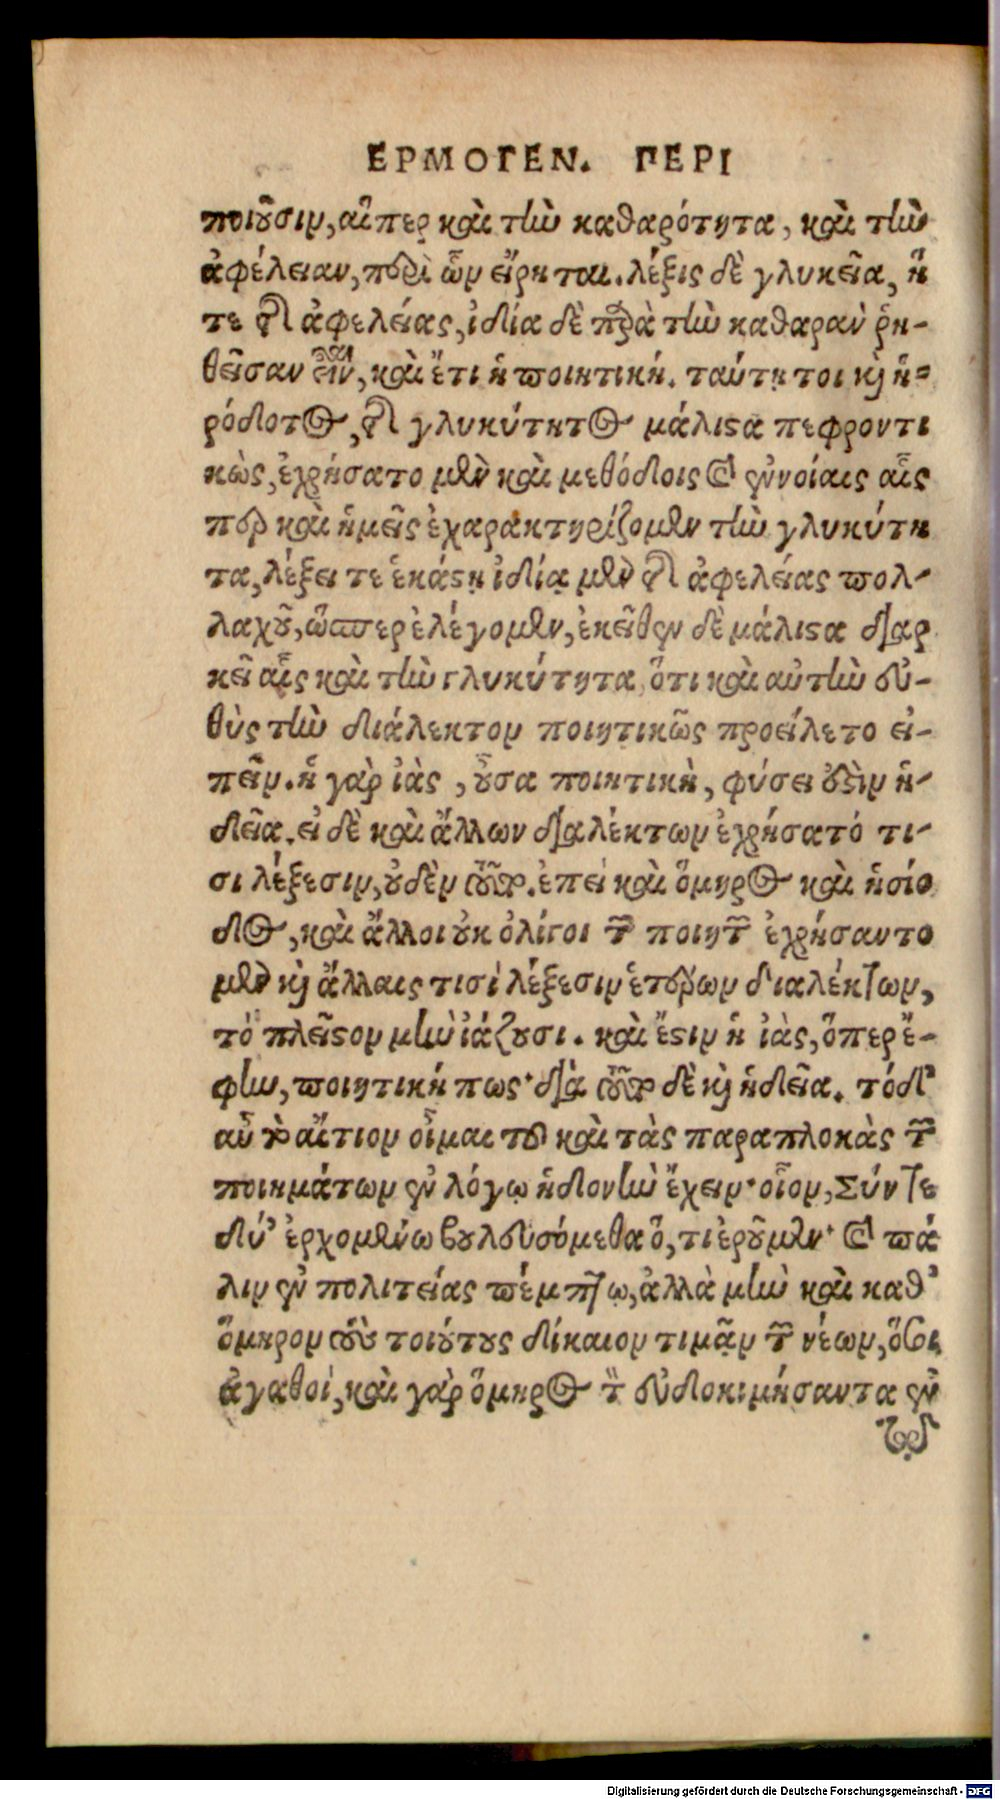 ΕΡΜΟΓΕΝ. ΠΕΡΙ
ποιοῦσιν, αἵπερ καὶ τὴν καθαρότητα, καὶ τὴν
ἀφέλειαν, περὶ ὧν εἴρηται. λέξις δὲ γλυκεῖα, ἥ
τε τῆς ἀφελείας, ἰδία δὲ παρὰ τὴν καθαρὰν ῥη-
θεῖσαν εἶναι, καὶ ἔτι ἡ ποιητική. ταύτῃ τοι καὶ ἡ-
ρόδοτος, τῆς γλυκύτητος μάλιστα πεφροντι
κὼς, ἐχρήσατο μὲν καὶ μεθόδοις καὶ ἐννοίαις αἷς
περ καὶ ἡμεῖς ἐχαρακτηρίζομεν τὴν γλυκύτη
τα, λέξει τε ἑκάστῃ ἰδίᾳ μὲν τῆς ἀφελείας πολ-
λαχοῦ, ὥσπερ ἐλέγομεν, ἐκεῖθεν δὲ μάλιστα διαρ
κεῖ αἷς καὶ τὴν γλυκύτητα, ὅτι καὶ αὐτὴν εὐ-
θὺς τὴν διάλεκτον ποιητικῶς προείλετο εἰ-
πεῖν. ἡ γὰρ ἰὰς, οὖσα ποιητικὴ, φύσει ἐστὶν ἡ-
δεῖα. εἰ δὲ καὶ ἄλλων διαλέκτων ἐχρήσατό τι-
σι λέξεσιν, οὐδὲν τοῦτο. ἐπεὶ καὶ ὅμηρος καὶ ἡσίο
δος, καὶ ἄλλοι οὐκ ὀλίγοι τῶν ποιητῶν ἐχρήσαντο
μὲν καὶ ἄλλαις τισὶ λέξεσιν ἑτέρων διαλέκτων,
τὸ πλεῖστον μὴν ἰάζουσι. καὶ ἔστιν ἡ ἰὰς, ὅπερ ἔ-
φην, ποιητική πως· διὰ τοῦτο δὲ καὶ ἡδεῖα. τόδ'
αὖ τὸ αἴτιον οἶμαι τοῦ καὶ τὰς παραπλοκὰς τῶν
ποιημάτων ἐν λόγῳ ἡδονὴν ἔχειν· οἷον, Σύν τε
δύ' ἐρχομένω βουλευσόμεθα ὅ, τι ἐροῦμεν· καὶ πά
λιν ἐν πολιτείας πέμπτῳ, ἀλλὰ μὴν καὶ καθ'
ὅμηρον τοὺς τοιούτους δίκαιον τιμᾶν τῶν νέων, ὅσοι
ἀγαθοί, καὶ γὰρ ὅμηρος τὸν εὐδοκιμήσαντα ἐν
τῷ
Digitalisierung gefördert durch die Deutsche Forschungsgemeinschaft - DFG